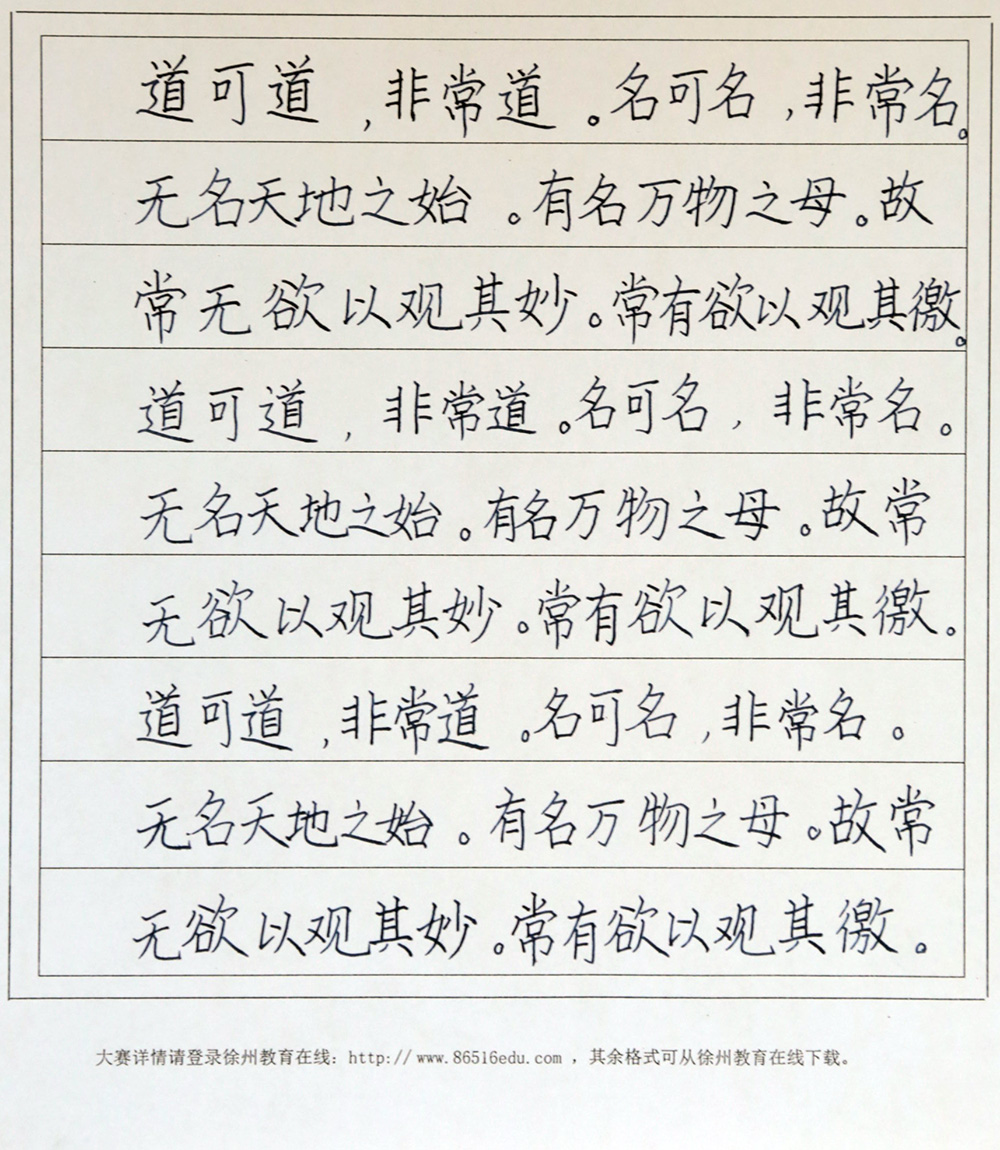 道可道，非常道。名可名，非常名。
无名天地之始。有名万物之母。故
常无欲以观其妙。常有欲以观其徼。
道可道，非常道。名可名，非常名。
无名天地之始。有名万物之母。故常
无欲以观其妙。常有欲以观其徼。
道可道，非常道。名可名，非常名。
无名天地之始。有名万物之母。故常
无欲以观其妙。常有欲以观其徼。
大赛详情请登录徐州教育在线：http://www.86516edu.com ，其余格式可从徐州教育在线下载。